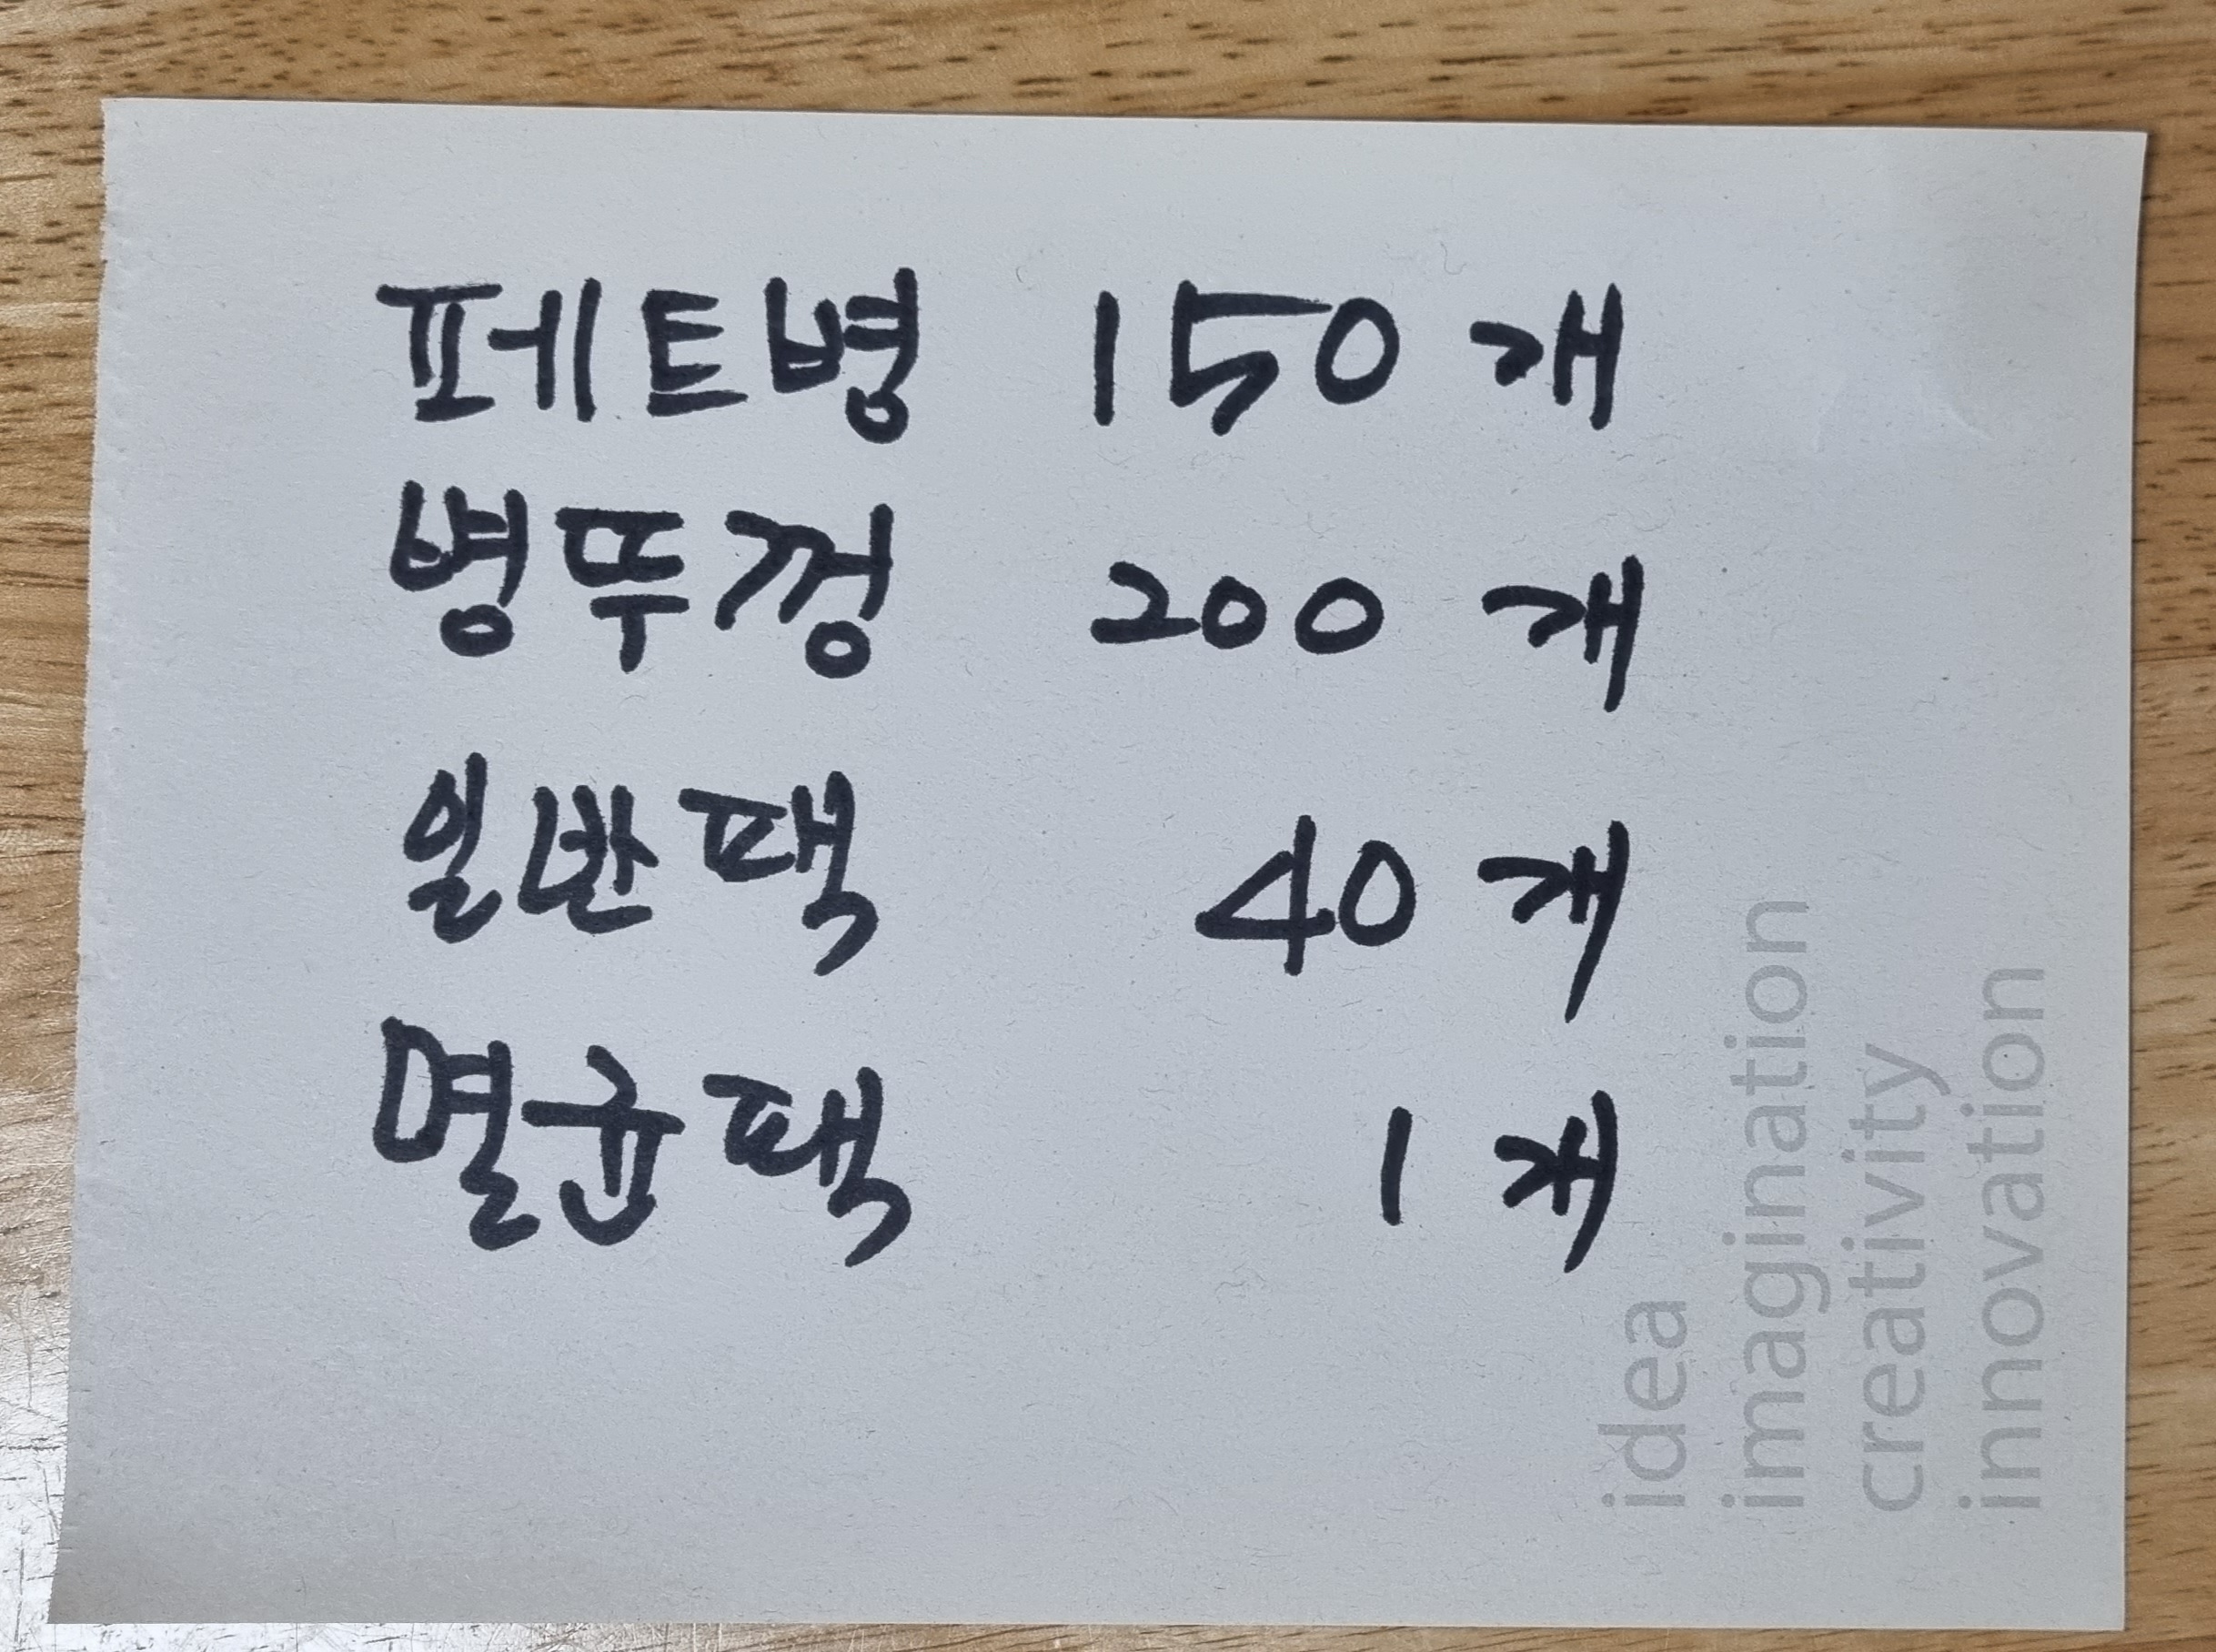 페트병 150 개
병뚜껑 200 개
일반팩 40 개
멸균팩 1 개
idea
imagination
creativity
innovation